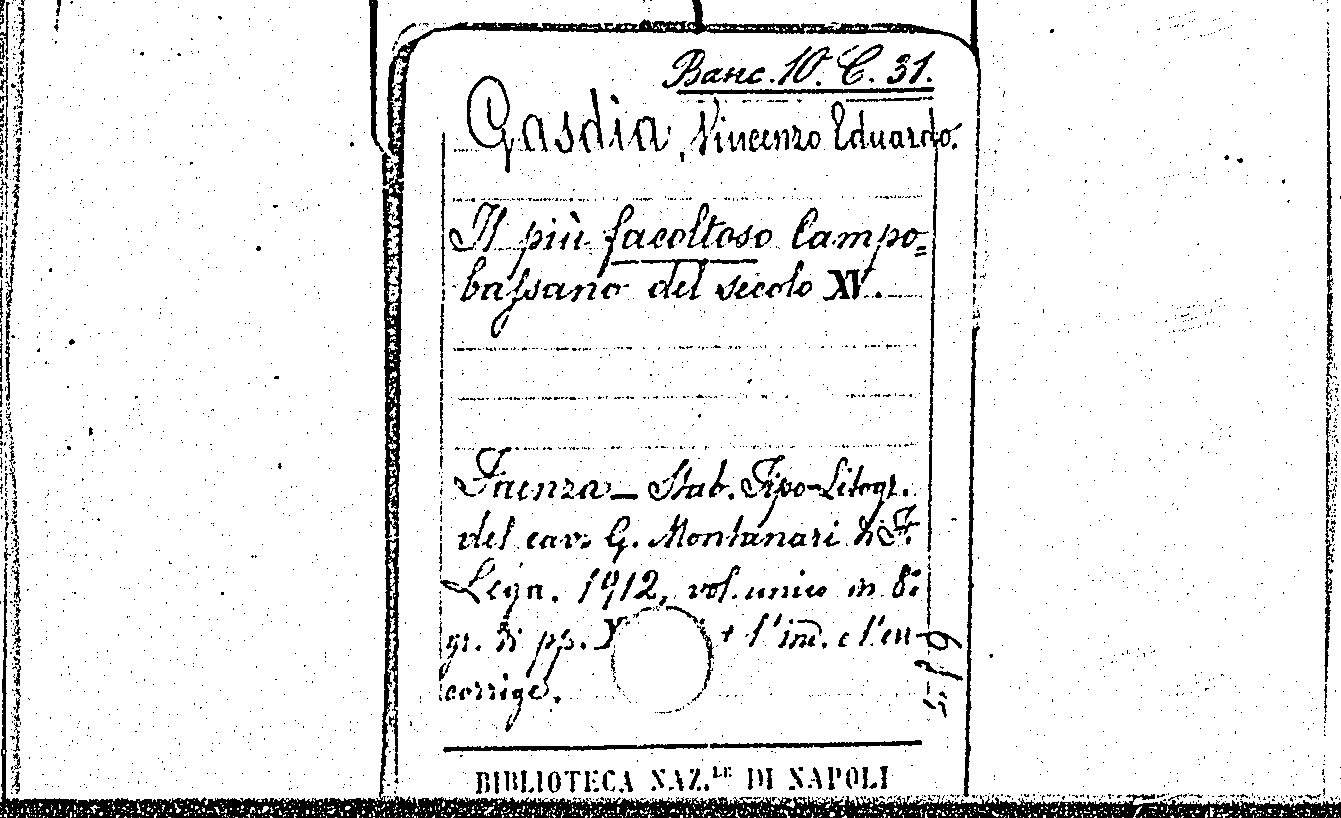 Banc. 10. C. 31.
Gasdia, Vincenzo Eduardo.
Il più facoltoso Campo=
bassano del secolo XV.
Faenza – Stab. Tipo-Litogr.
del cav. G. Montanari di F.
Lega. 1912, vol. unico in 8:
gr. di pp. X + l'ind. e l'err
corrige.
BIBLIOTECA NAZ.LE DI NAPOLI